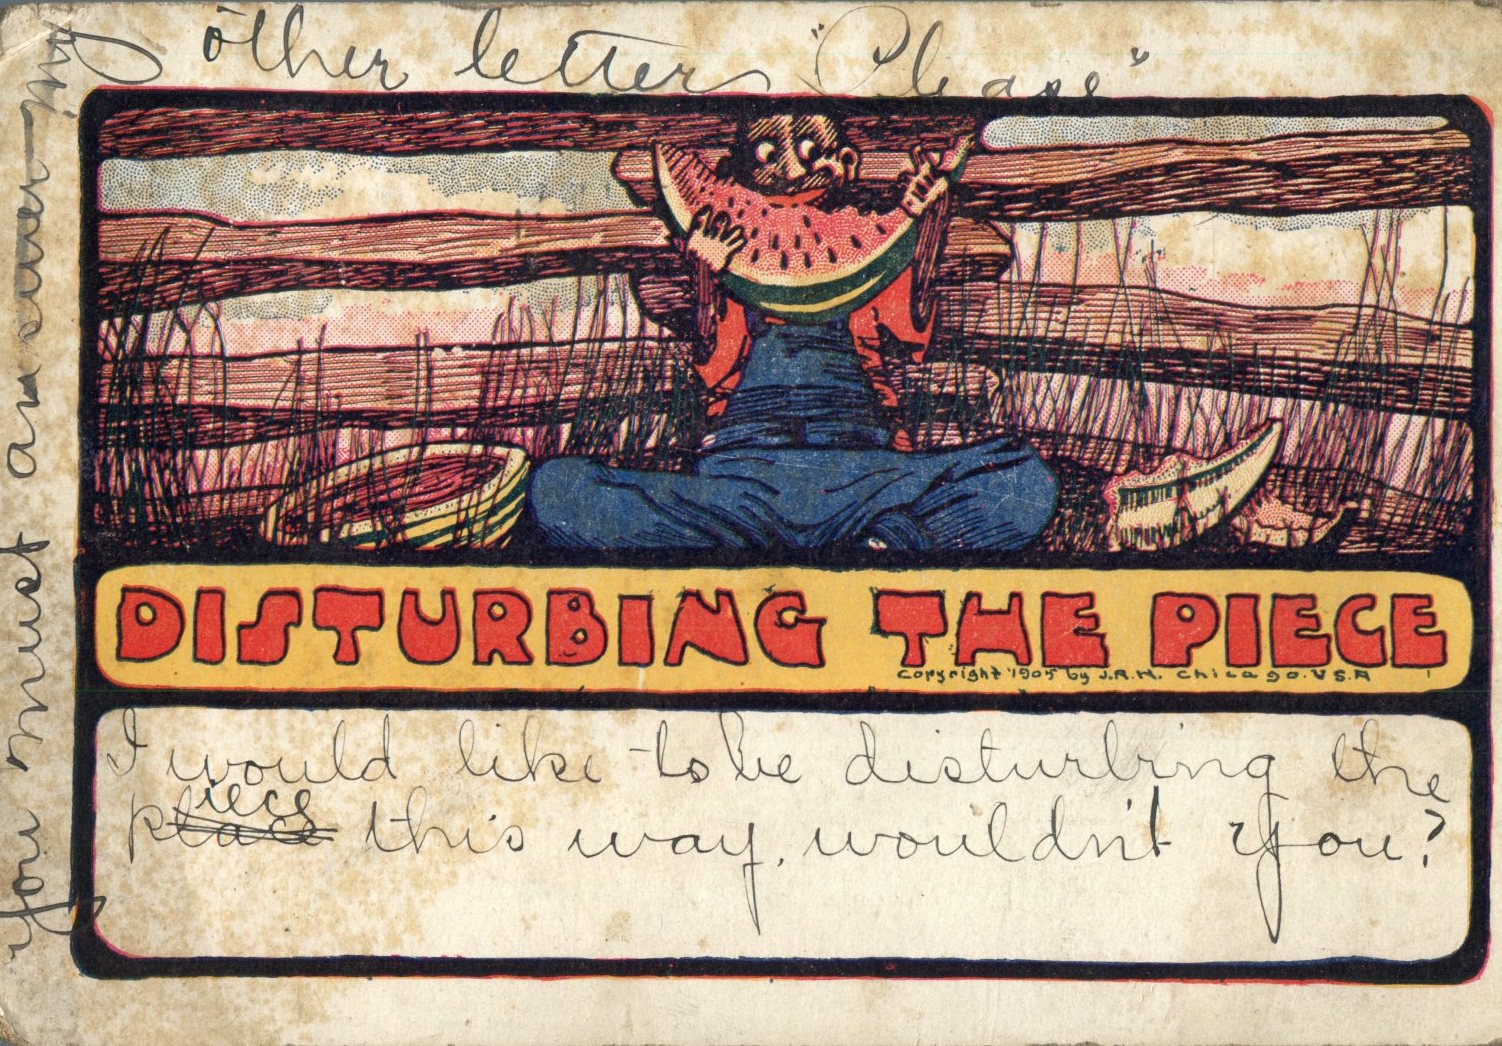 you must answer my
other letter "Please"
DISTURBING THE PIECE
Copyright 1905 by J.R.H. Chicago. U S.A
I would like to be disturbing the
piece
place this way, wouldn't you?